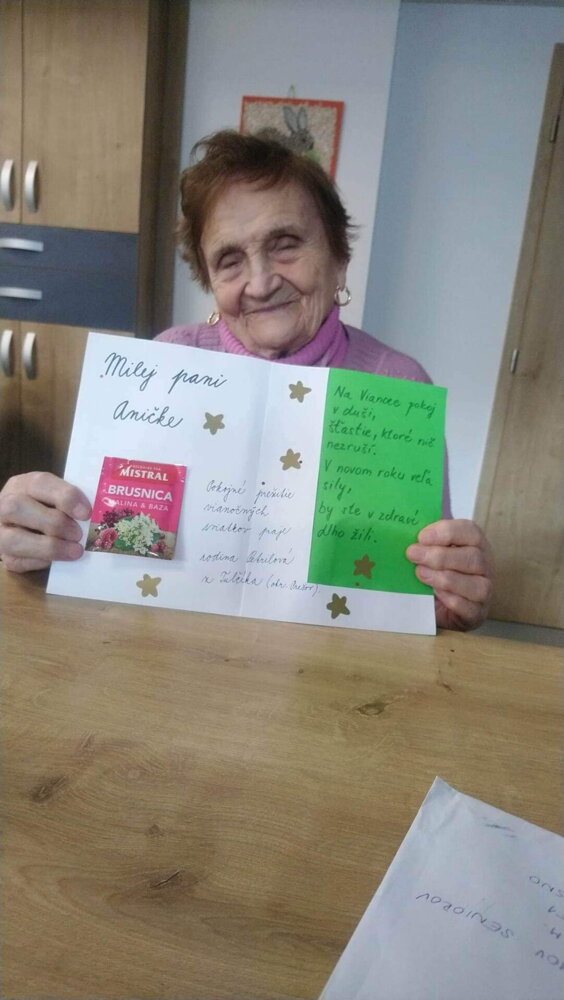 Milej pani
Aničke
MISTRAL
BRUSNICA
MALINA & BAZA
Pokojné prežitie
vianočných
sviatkov praje
rodina Petrilová
z Tulčíka (okr. Prešov).
Na Vianoce pokoj
v duši,
šťastie, ktoré nič
nezruší.
V novom roku veľa
sily,
by ste v zdraví
dlho žili.
SENIOROV